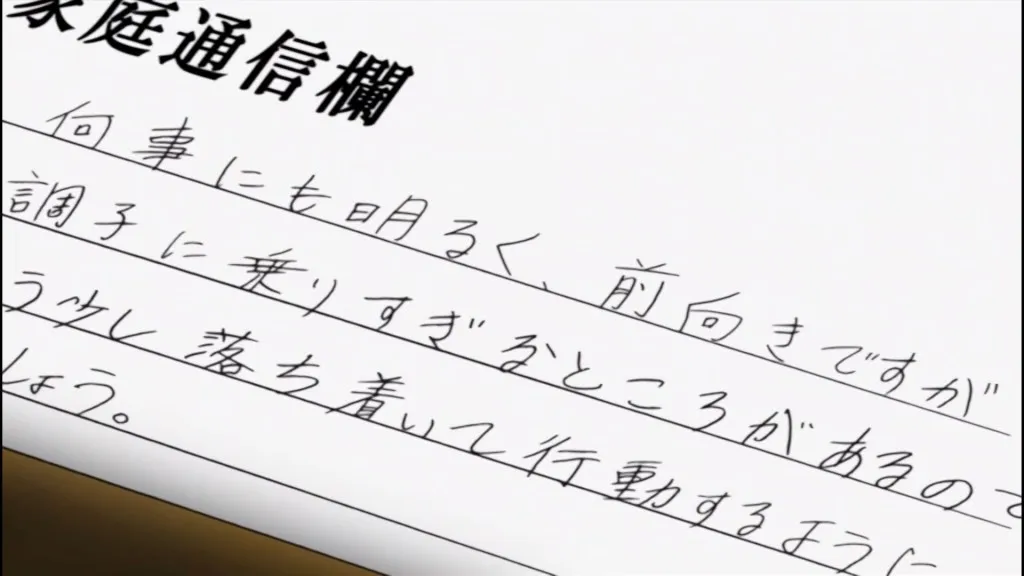 家庭通信欄
何事にも明るく、前向きですが
調子に乗りすぎるところがあるので
う少し落ち着いて行動するように
しょう。